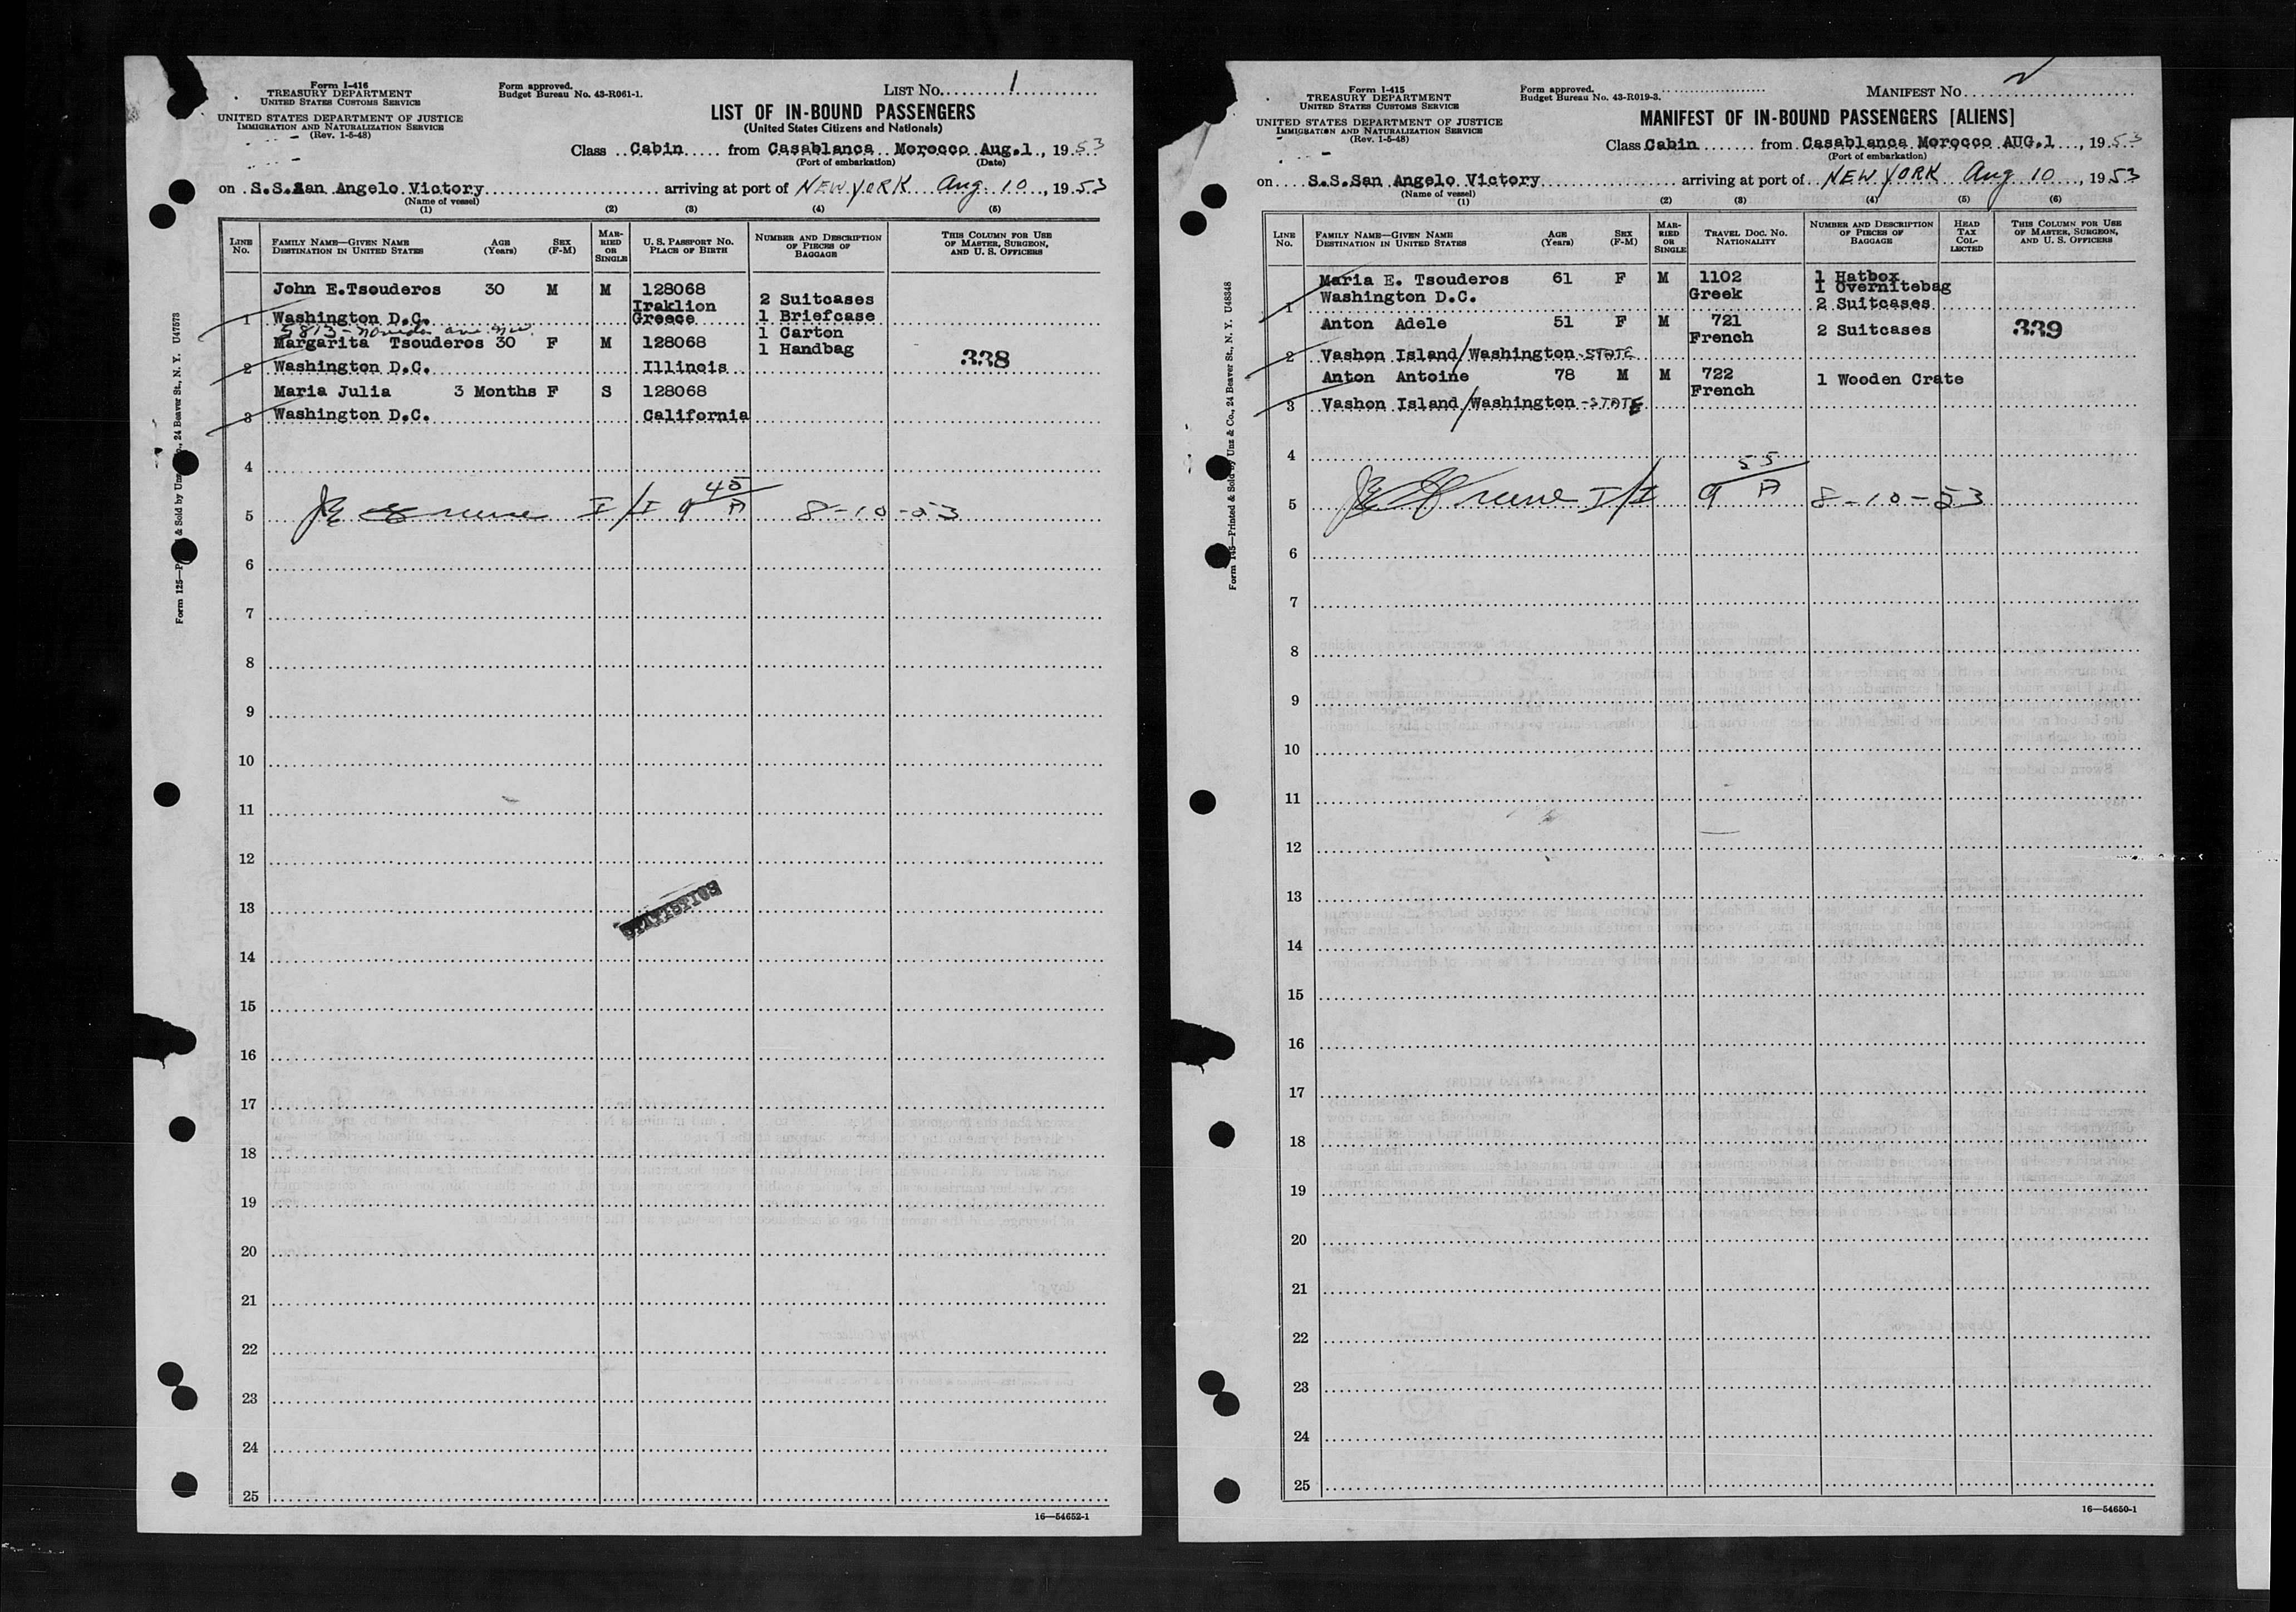 Form I-416
TREASURY DEPARTMENT
UNITED STATES CUSTOMS SERVICE
UNITED STATES DEPARTMENT OF JUSTICE
IMMIGRATION AND NATURALIZATION SERVICE
(Rev. 1-5-48)
Form approved.
Budget Bureau No. 43-R061-1.
LIST NO. 1
LIST OF IN-BOUND PASSENGERS
(United States Citizens and Nationals)
Class Cabin from Casablanca Morocco Aug.1, 1953
(Port of embarkation) (Date)
on S.S.San Angelo Victory arriving at port of NEW YORK Aug. 10, 1953
(Name of vessel)
(1) (2) (3) (4) (5)
LINE NO. FAMILY NAME—GIVEN NAME DESTINATION IN UNITED STATES AGE (Years) SEX (F-M) MARRIED OR SINGLE U. S. PASSPORT NO. PLACE OF BIRTH NUMBER AND DESCRIPTION OF PIECES OF BAGGAGE THIS COLUMN FOR USE OF MASTER, SURGEON, AND U. S. OFFICERS
John E.Tsouderos 30 M M 128068
Iraklion 2 Suitcases
1 Washington D.C. Greece 1 Briefcase
5813- 1 Carton
Margarita Tsouderos 30 F M 128068 1 Handbag
338
2 Washington D.C. Illinois
Maria Julia 3 Months F S 128068
3 Washington D.C. California
4
5 I/I 9 45 A 8-10-53
6
7
8
9
10
11
12
13
14
15
16
17
18
19
20
21
22
23
24
25
16—54652-1
U47573
Form 125
Form I-415
TREASURY DEPARTMENT
UNITED STATES CUSTOMS SERVICE
UNITED STATES DEPARTMENT OF JUSTICE
IMMIGRATION AND NATURALIZATION SERVICE
(Rev. 1-5-48)
Form approved.
Budget Bureau No. 43-R019-3.
MANIFEST NO
MANIFEST OF IN-BOUND PASSENGERS [ALIENS]
Class Cabin from Casablanca Morocco AUG.1, 1953
(Port of embarkation)
on S.S.San Angelo Victory arriving at port of NEW YORK Aug 10, 1953
(Name of vessel)
(1) (2) (3) (4) (5) (6)
LINE NO. FAMILY NAME—GIVEN NAME DESTINATION IN UNITED STATES AGE (Years) SEX (F-M) MARRIED OR SINGLE TRAVEL DOC. NO. NATIONALITY NUMBER AND DESCRIPTION OF PIECES OF BAGGAGE HEAD TAX COLLECTED THIS COLUMN FOR USE OF MASTER, SURGEON, AND U. S. OFFICERS
Maria E. Tsouderos 61 F M 1102 1 Hatbox
Washington D.C. Greek 1 Overnitebag
1 2 Suitcases
Anton Adele 51 F M 721 2 Suitcases 339
French
2 Vashon Island/Washington-STATE
Anton Antoine 78 M M 722 1 Wooden Crate
French
3 Vashon Island/Washington-STATE
4
5 I/I 9 55 A 8-10-53
6
7
8
9
10
11
12
13
14
15
16
17
18
19
20
21
22
23
24
25
16—54650-1
U48348